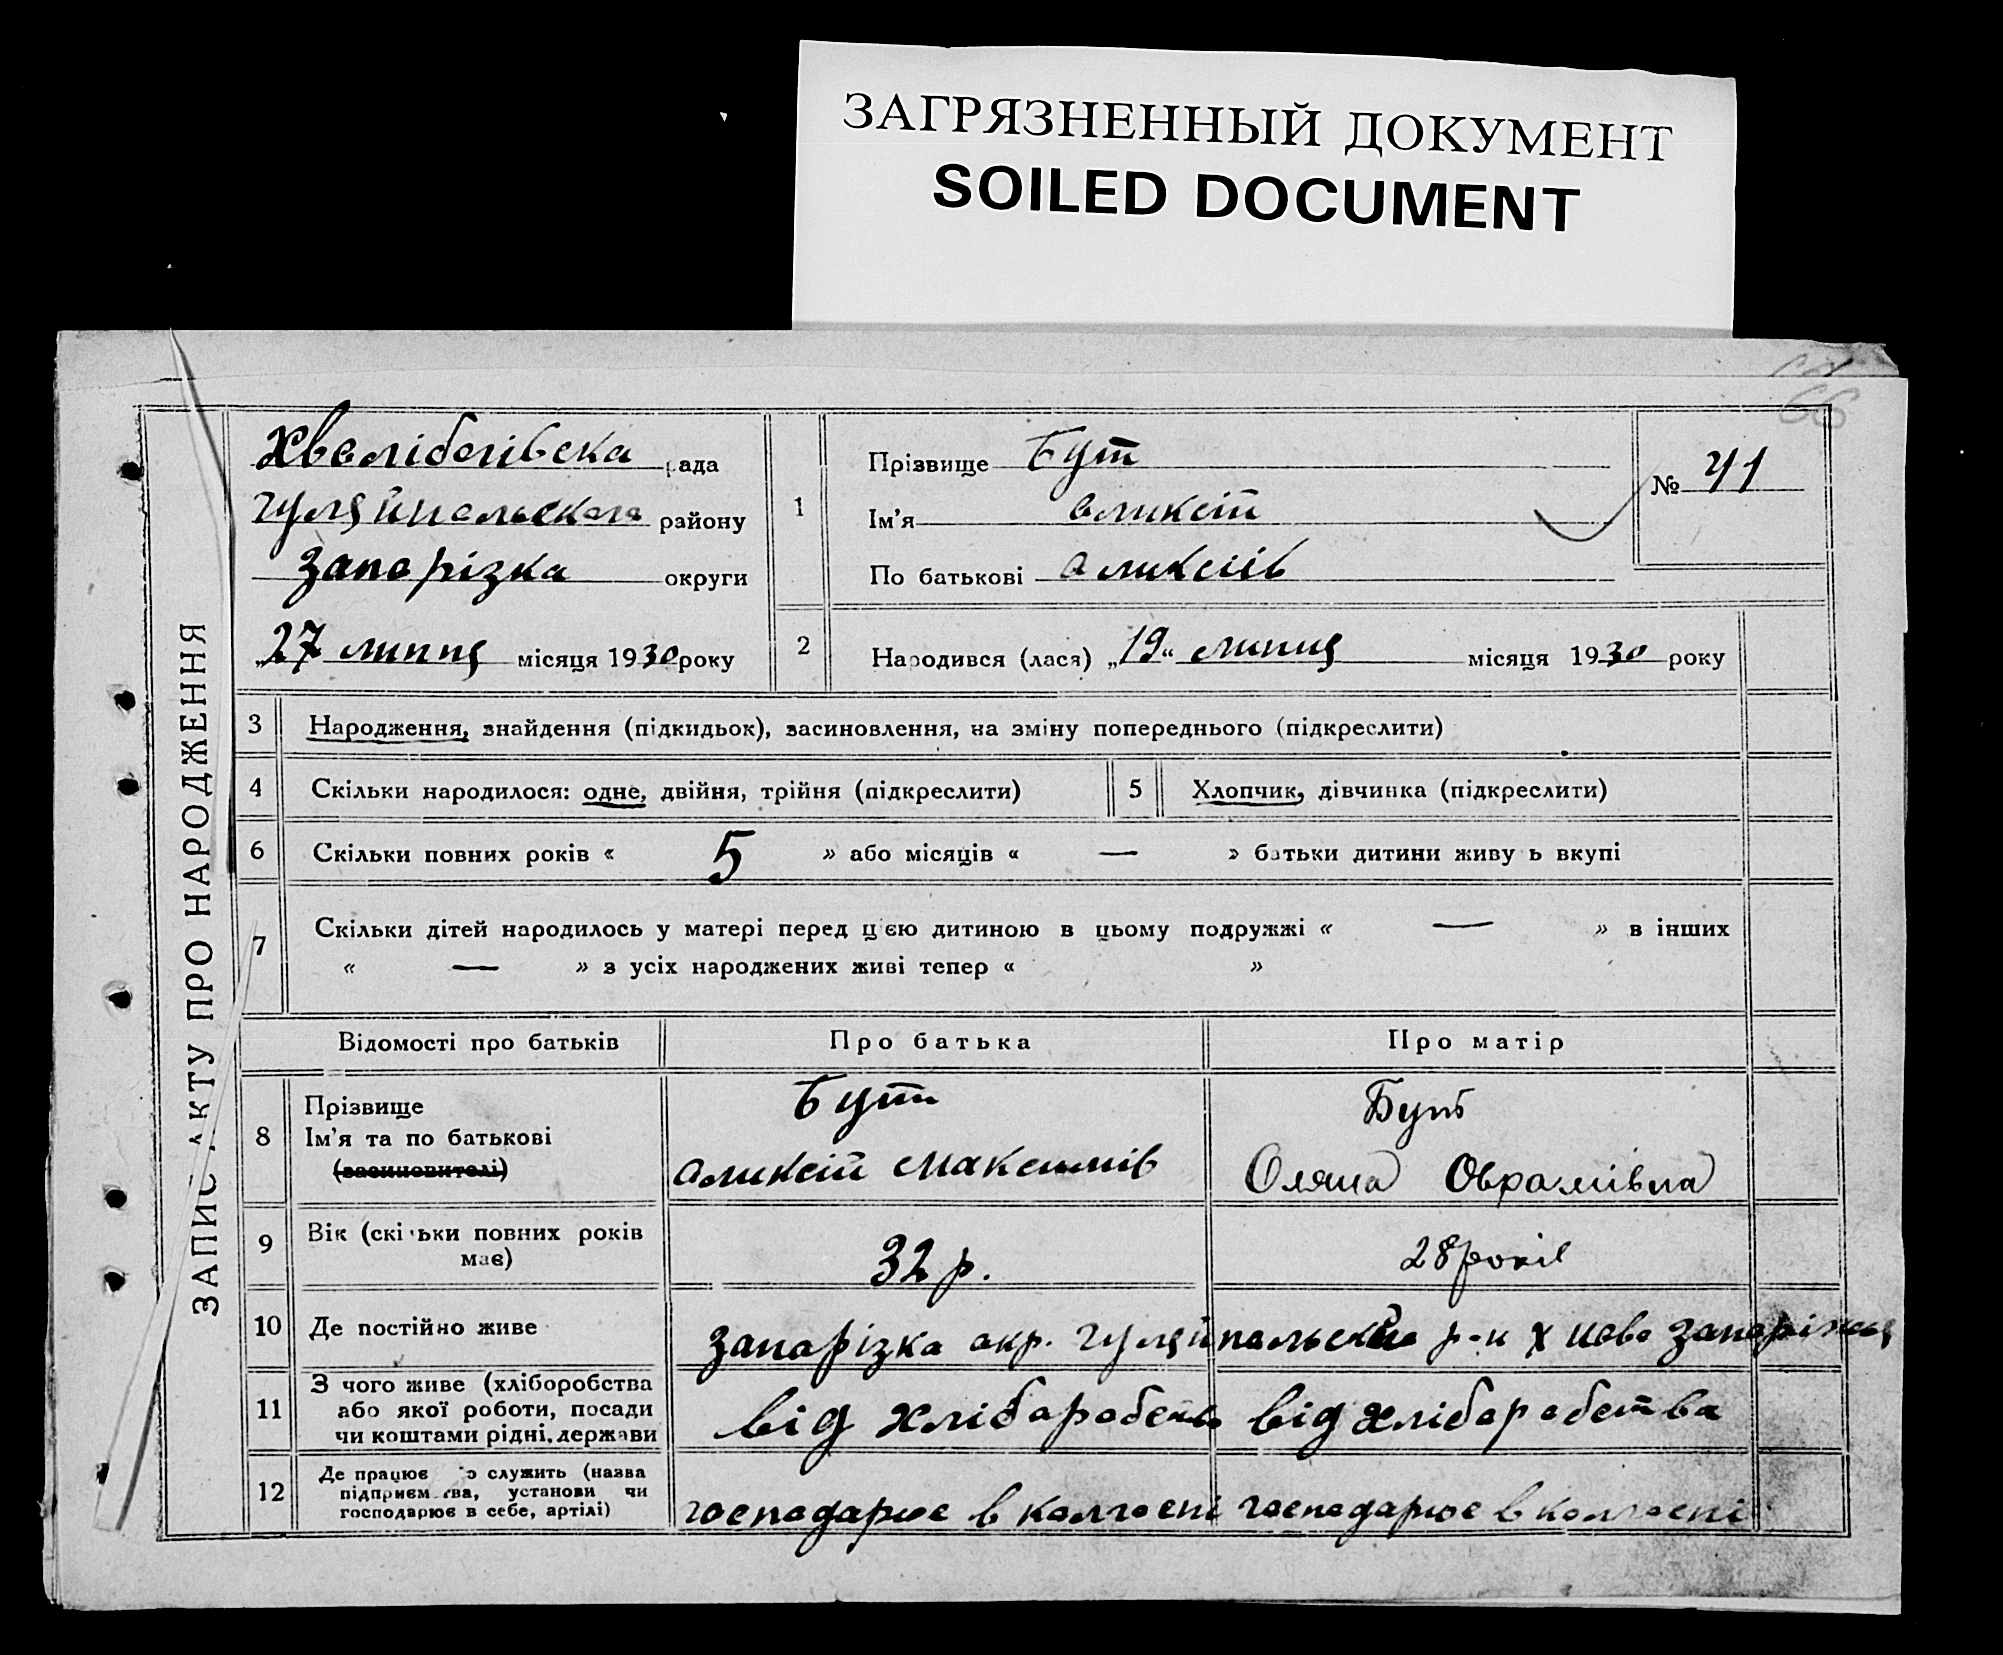 ЗАГРЯЗНЕННЫЙ ДОКУМЕНТ
SOILED DOCUMENT
66
ЗАПИС АКТУ ПРО НАРОДЖЕННЯ
Хвалібогівска рада
гуляйпольского району
Запарізка округи
„27 липня місяця 1930 року
1
Прізвище Бут
Ім'я аликсій
По батькові аликсіів
№ 41
2
Народився (лася) „19“ липня місяця 1930 року
3 Народження, знайдення (підкидьок), засиновлення, на зміну попереднього (підкреслити)
4 Скільки народилося: одне, двійня, трійня (підкреслити)
5 Хлопчик, дівчинка (підкреслити)
6 Скільки повних років « 5 » або місяців « — » батьки дитини живуть вкупі
7 Скільки дітей народилось у матері перед цією дитиною в цьому подружжі « — » в інших
« — » з усіх народжених живі тепер « »
Відомості про батьків Про батька Про матір
8 Прізвище
Ім'я та по батькові
(засиновителі)
Бут
аликсій максимів
Бут
Оляна Оврамівна
9 Вік (скільки повних років
має)
32 р.
28 років
10 Де постійно живе
Запарізка акр. гуляйпальский р-н х Ново Запаріжця
11 З чого живе (хліборобства
або якої роботи, посади
чи коштами рідні, держави
від хлібаробства
від хлібаробства
12 Де працює чи служить (назва
підприємства, установи чи
господарює в себе, артілі)
господарює в колгоспі
господарює в колгоспі